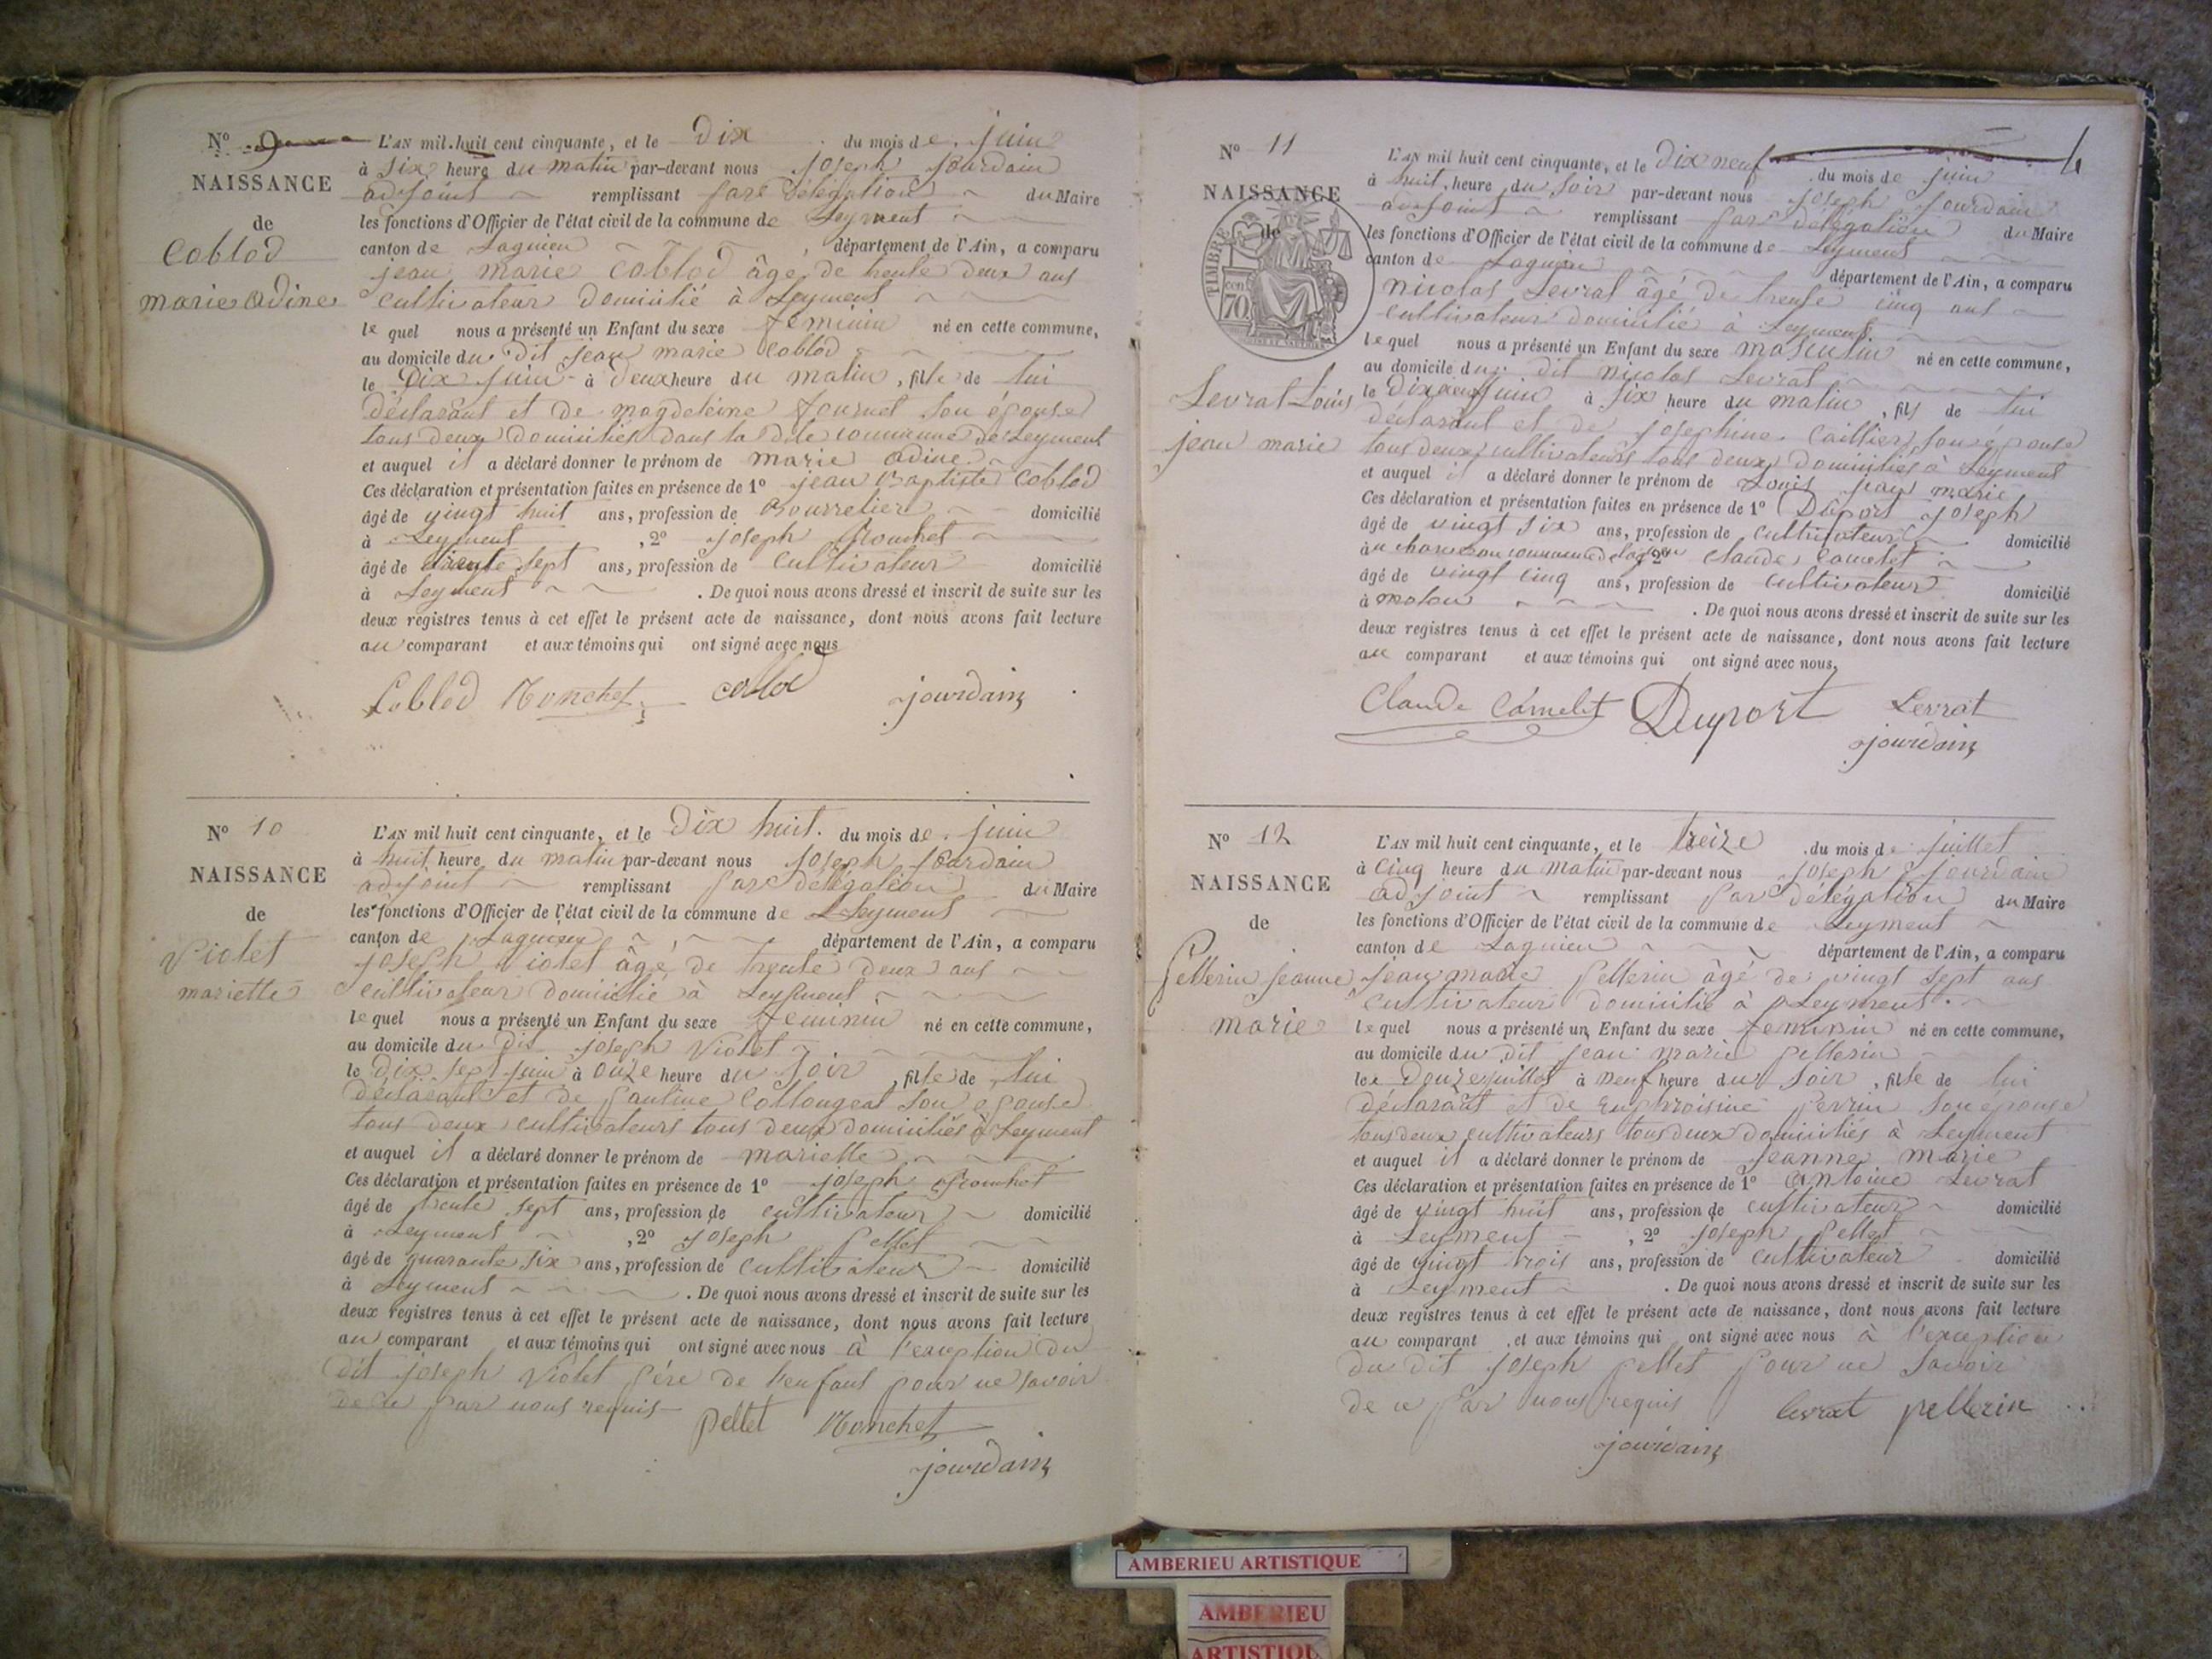 N° 9
NAISSANCE
de
Coblod
marie adine
L'AN mil huit cent cinquante, et le Dix du mois de juin
à six heure du matin par-devant nous joseph jourdain
adjoint remplissant par délégation du Maire
les fonctions d'Officier de l'état civil de la commune de Leyment
canton de Lagnieu, département de l'Ain, a comparu
jean marie Coblod âgé de trente deux ans
cultivateur domicilié à Leyment
le quel nous a présenté un Enfant du sexe féminin né en cette commune,
au domicile du dit jean marie Coblod
le Dix juin à deux heure du matin, fille de lui
déclarant et de magdeleine fournet son épouse
tous deux domiciliés dans la dite commune de Leyment
et auquel il a déclaré donner le prénom de marie adine
Ces déclaration et présentation faites en présence de 1° jean Baptiste Coblod
âgé de vingt huit ans, profession de Bourrelier domicilié
à Leyment, 2° joseph Monchet
âgé de trente sept ans, profession de cultivateur domicilié
à Leyment. De quoi nous avons dressé et inscrit de suite sur les
deux registres tenus à cet effet le présent acte de naissance, dont nous avons fait lecture
au comparant et aux témoins qui ont signé avec nous
Coblod Monchet coblod jourdain
N° 10
NAISSANCE
de
Violet
mariette
L'AN mil huit cent cinquante, et le Dix huit du mois de juin
à huit heure du matin par-devant nous joseph jourdain
adjoint remplissant par délégation du Maire
les fonctions d'Officier de l'état civil de la commune de Leyment
canton de Lagnieu, département de l'Ain, a comparu
joseph violet âgé de trente deux ans
cultivateur domicilié à Leyment
le quel nous a présenté un Enfant du sexe féminin né en cette commune,
au domicile du dit joseph violet
le dix sept juin à onze heure du soir, fille de lui
déclarant et de pauline Collongeat son épouse
tous deux cultivateurs tous deux domiciliés à Leyment
et auquel il a déclaré donner le prénom de mariette
Ces déclaration et présentation faites en présence de 1° joseph Monchet
âgé de trente sept ans, profession de cultivateur domicilié
à Leyment, 2° joseph pellet
âgé de quarante six ans, profession de cultivateur domicilié
à Leyment. De quoi nous avons dressé et inscrit de suite sur les
deux registres tenus à cet effet le présent acte de naissance, dont nous avons fait lecture
au comparant et aux témoins qui ont signé avec nous à l'exception du
dit joseph violet père de l'enfant pour ne savoir
de ce par nous requis
pellet Monchet
jourdain
4
N° 11
NAISSANCE
de
TIMBRE
70
Levrat Louis
jean marie
L'AN mil huit cent cinquante, et le Dix neuf du mois de juin
à huit heure du soir par-devant nous joseph jourdain
adjoint remplissant par délégation du Maire
les fonctions d'Officier de l'état civil de la commune de Leyment
canton de Lagnieu département de l'Ain, a comparu
nicolas Levrat âgé de trente cinq ans
cultivateur domicilié à Leyment
le quel nous a présenté un Enfant du sexe masculin né en cette commune,
au domicile du dit nicolas Levrat
le Dix neuf juin à six heure du matin, fils de lui
déclarant et de josephine Caillier son épouse
tous deux cultivateurs tous deux domiciliés à Leyment
et auquel il a déclaré donner le prénom de Louis jean marie
Ces déclaration et présentation faites en présence de 1° Duport joseph
âgé de vingt six ans, profession de cultivateur domicilié
à 2° claude Camelet
âgé de vingt cinq ans, profession de cultivateur domicilié
à . De quoi nous avons dressé et inscrit de suite sur les
deux registres tenus à cet effet le présent acte de naissance, dont nous avons fait lecture
au comparant et aux témoins qui ont signé avec nous,
Claude Camelet Duport Levrat
jourdain
N° 12
NAISSANCE
de
Pellerin jeanne
marie
L'AN mil huit cent cinquante, et le treize du mois de juillet
à cinq heure du matin par-devant nous joseph jourdain
adjoint remplissant par délégation du Maire
les fonctions d'Officier de l'état civil de la commune de Leyment
canton de Lagnieu département de l'Ain, a comparu
jean marie pellerin âgé de vingt sept ans
cultivateur domicilié à Leyment
le quel nous a présenté un Enfant du sexe féminin né en cette commune,
au domicile du dit jean marie pellerin
le Douze juillet à neuf heure du soir, fille de lui
déclarant et de Euphroisine perrin son épouse
tous deux cultivateurs tous deux domiciliés à Leyment
et auquel il a déclaré donner le prénom de jeanne marie
Ces déclaration et présentation faites en présence de 1° antoine Levrat
âgé de vingt huit ans, profession de cultivateur domicilié
à Leyment, 2° joseph pellet
âgé de vingt trois ans, profession de cultivateur domicilié
à Leyment. De quoi nous avons dressé et inscrit de suite sur les
deux registres tenus à cet effet le présent acte de naissance, dont nous avons fait lecture
au comparant et aux témoins qui ont signé avec nous à l'exception
du dit joseph pellet pour ne savoir
de ce par nous requis levrat pellerin
jourdain
AMBERIEU ARTISTIQUE
AMBERIEU
ARTISTIQU